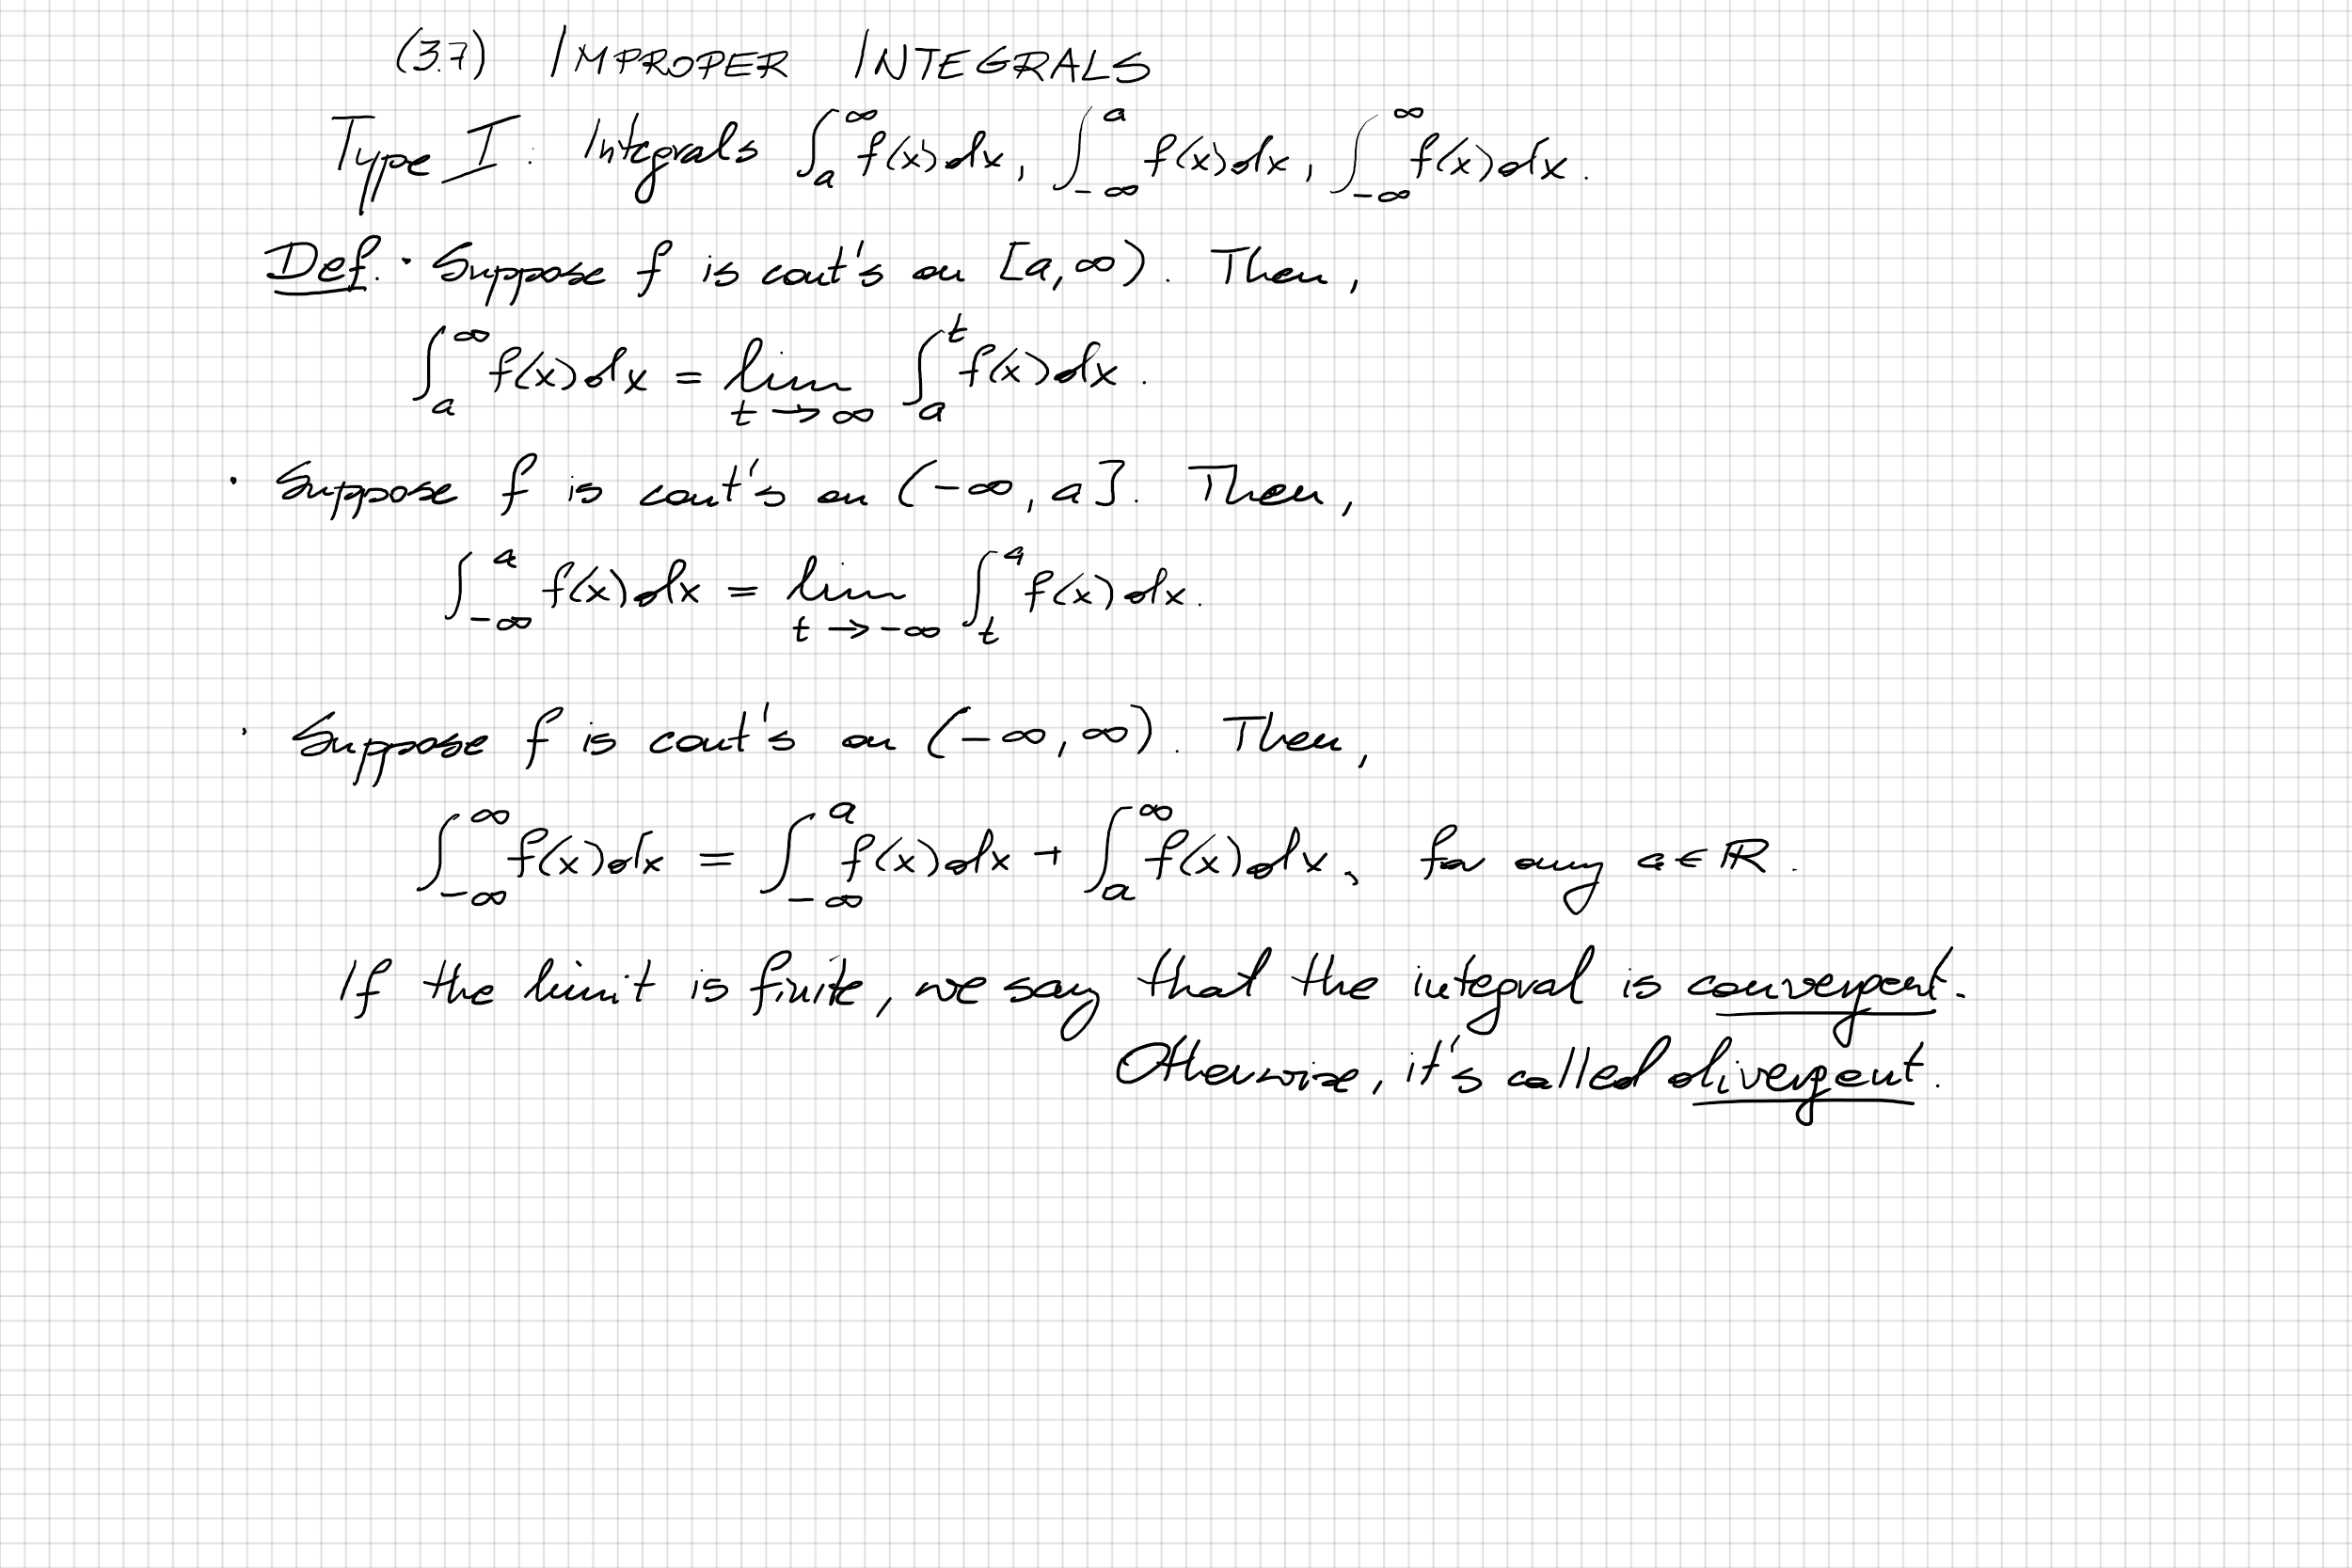 (3.7) IMPROPER INTEGRALS
Type I: Integrals ∫_a^∞ f(x)dx, ∫_{-∞}^a f(x)dx, ∫_{-∞}^∞ f(x)dx.
Def. · Suppose f is cont's on [a,∞). Then,
∫_a^∞ f(x)dx = lim_{t→∞} ∫_a^t f(x)dx.
· Suppose f is cont's on (-∞, a]. Then,
∫_{-∞}^a f(x)dx = lim_{t→-∞} ∫_t^a f(x)dx.
· Suppose f is cont's on (-∞,∞). Then,
∫_{-∞}^∞ f(x)dx = ∫_{-∞}^a f(x)dx + ∫_a^∞ f(x)dx, for any a∈ℝ.
If the limit is finite, we say that the integral is convergent.
Otherwise, it's called divergent.